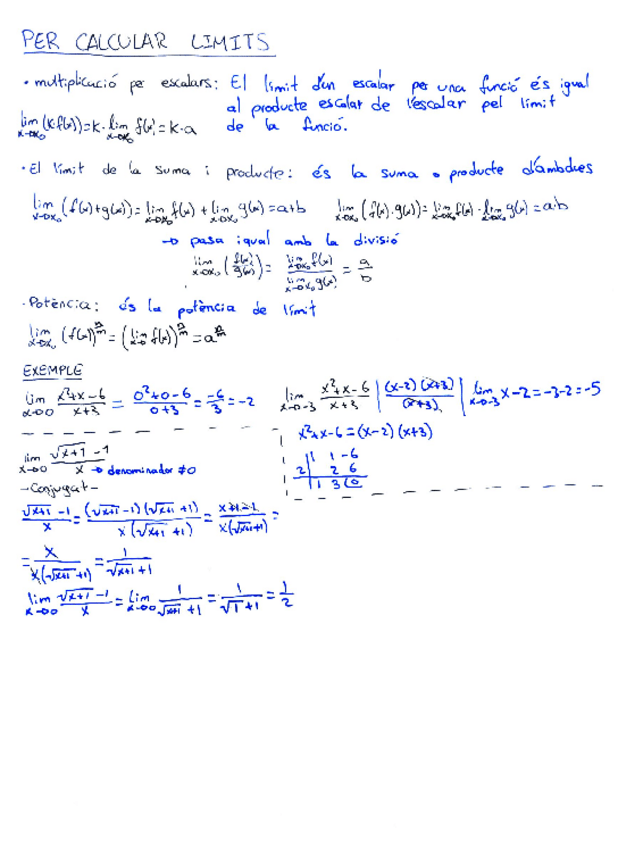 PER CALCULAR LIMITS
· multiplicació per escalars: El límit d'un escalar per una funció és igual
al producte escalar de l'escalar pel límit
de la funció.
lim x→x₀ (K·f(x)) = K · lim x→x₀ f(x) = K·a
· El límit de la suma i producte: és la suma o producte d'ambdues
lim x→x₀ (f(x)+g(x)) = lim x→x₀ f(x) + lim x→x₀ g(x) = a+b
lim x→x₀ (f(x)·g(x)) = lim x→x₀ f(x) · lim x→x₀ g(x) = a·b
→ pasa igual amb la divisió
lim x→x₀ (f(x)/g(x)) = lim x→x₀ f(x) / lim x→x₀ g(x) = a/b
· Potència: és la potència de límit
lim x→x₀ (f(x))^(n/m) = (lim x→0 f(x))^(n/m) = a^(n/m)
EXEMPLE
lim x→0 (x²+x-6)/(x+3) = (0²+0-6)/(0+3) = -6/3 = -2
lim x→-3 (x²+x-6)/(x+3) | (x-2)(x+3)/(x+3) | lim x→-3 x-2 = -3-2 = -5
x²+x-6 = (x-2)(x+3)
1 1 -6
2 | 2 6
1 3 0
lim x→0 (√(x+1) -1)/x → denominador ≠0
- Conjugat -
(√(x+1) -1)/x = (√(x+1) -1)(√(x+1) +1)/(x(√(x+1) +1)) = (x+1-1)/(x(√(x+1) +1)) =
= x/(x(√(x+1) +1)) = 1/(√(x+1) +1)
lim x→0 (√(x+1) -1)/x = lim x→0 1/(√(x+1) +1) = 1/(√1 +1) = 1/2